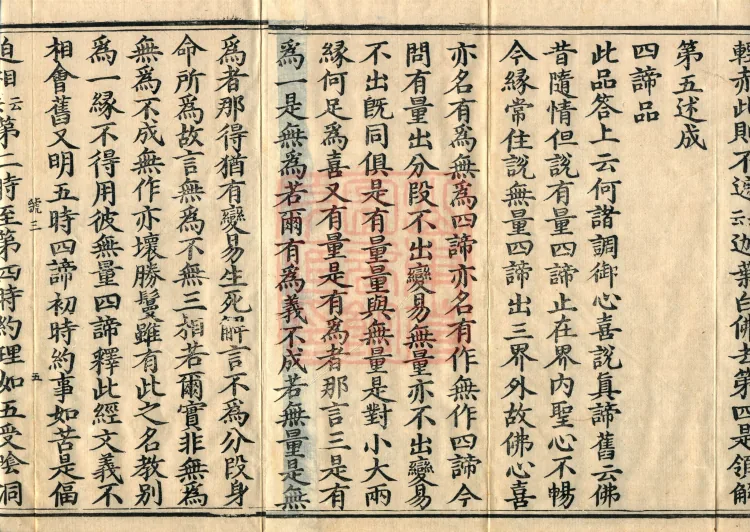 輕亦此則不
第五述成
四諦品
此品答上云何諸調御心喜說真諦舊云佛
昔隨情但說有量四諦止在界內聖心不暢
今緣常住說無量四諦出三界外故佛心喜
亦名有為無為四諦亦名有作無作四諦今
問有量出分段不出變易無量亦不出變易
不出既同俱是有量量與無量是對小大兩
緣何足為喜又有量是有為者那言三是有
為一是無為若爾有為義不成若無量是無
為者那得猶有變易生死解言不為分段身
命所為故言無為不無三相若爾實非無為
無為不成無作亦壞勝鬘雖有此之名教別
為一緣不得用彼無量四諦釋此經文義不
相會舊又明五時四諦初時約事如苦是偪
迫相云第二時至第四時約理如五受陰洞
號三
五